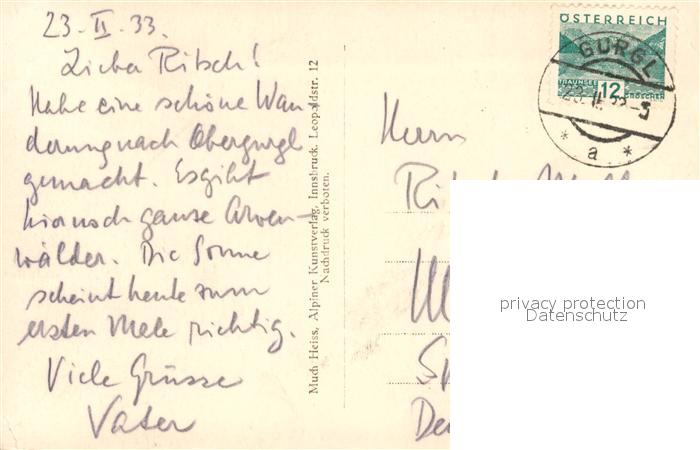 23. II. 33.
Lieber Ritsch!
Habe eine schöne Wan-
derung nach Obergurgl
gemacht. Es gibt
hier noch ganze Arven-
wälder. Die Sonne
scheint heute zum
ersten Male richtig.
Viele Grüsse
Vater
Much Heiss, Alpiner Kunstverlag, Innsbruck, Leopoldstr. 12
Nachdruck verboten.
ÖSTERREICH
TRAUNSEE
12
GROSCHEN
GURGL
23. II. 33-5
* a *
Herrn
privacy protection
Datenschutz